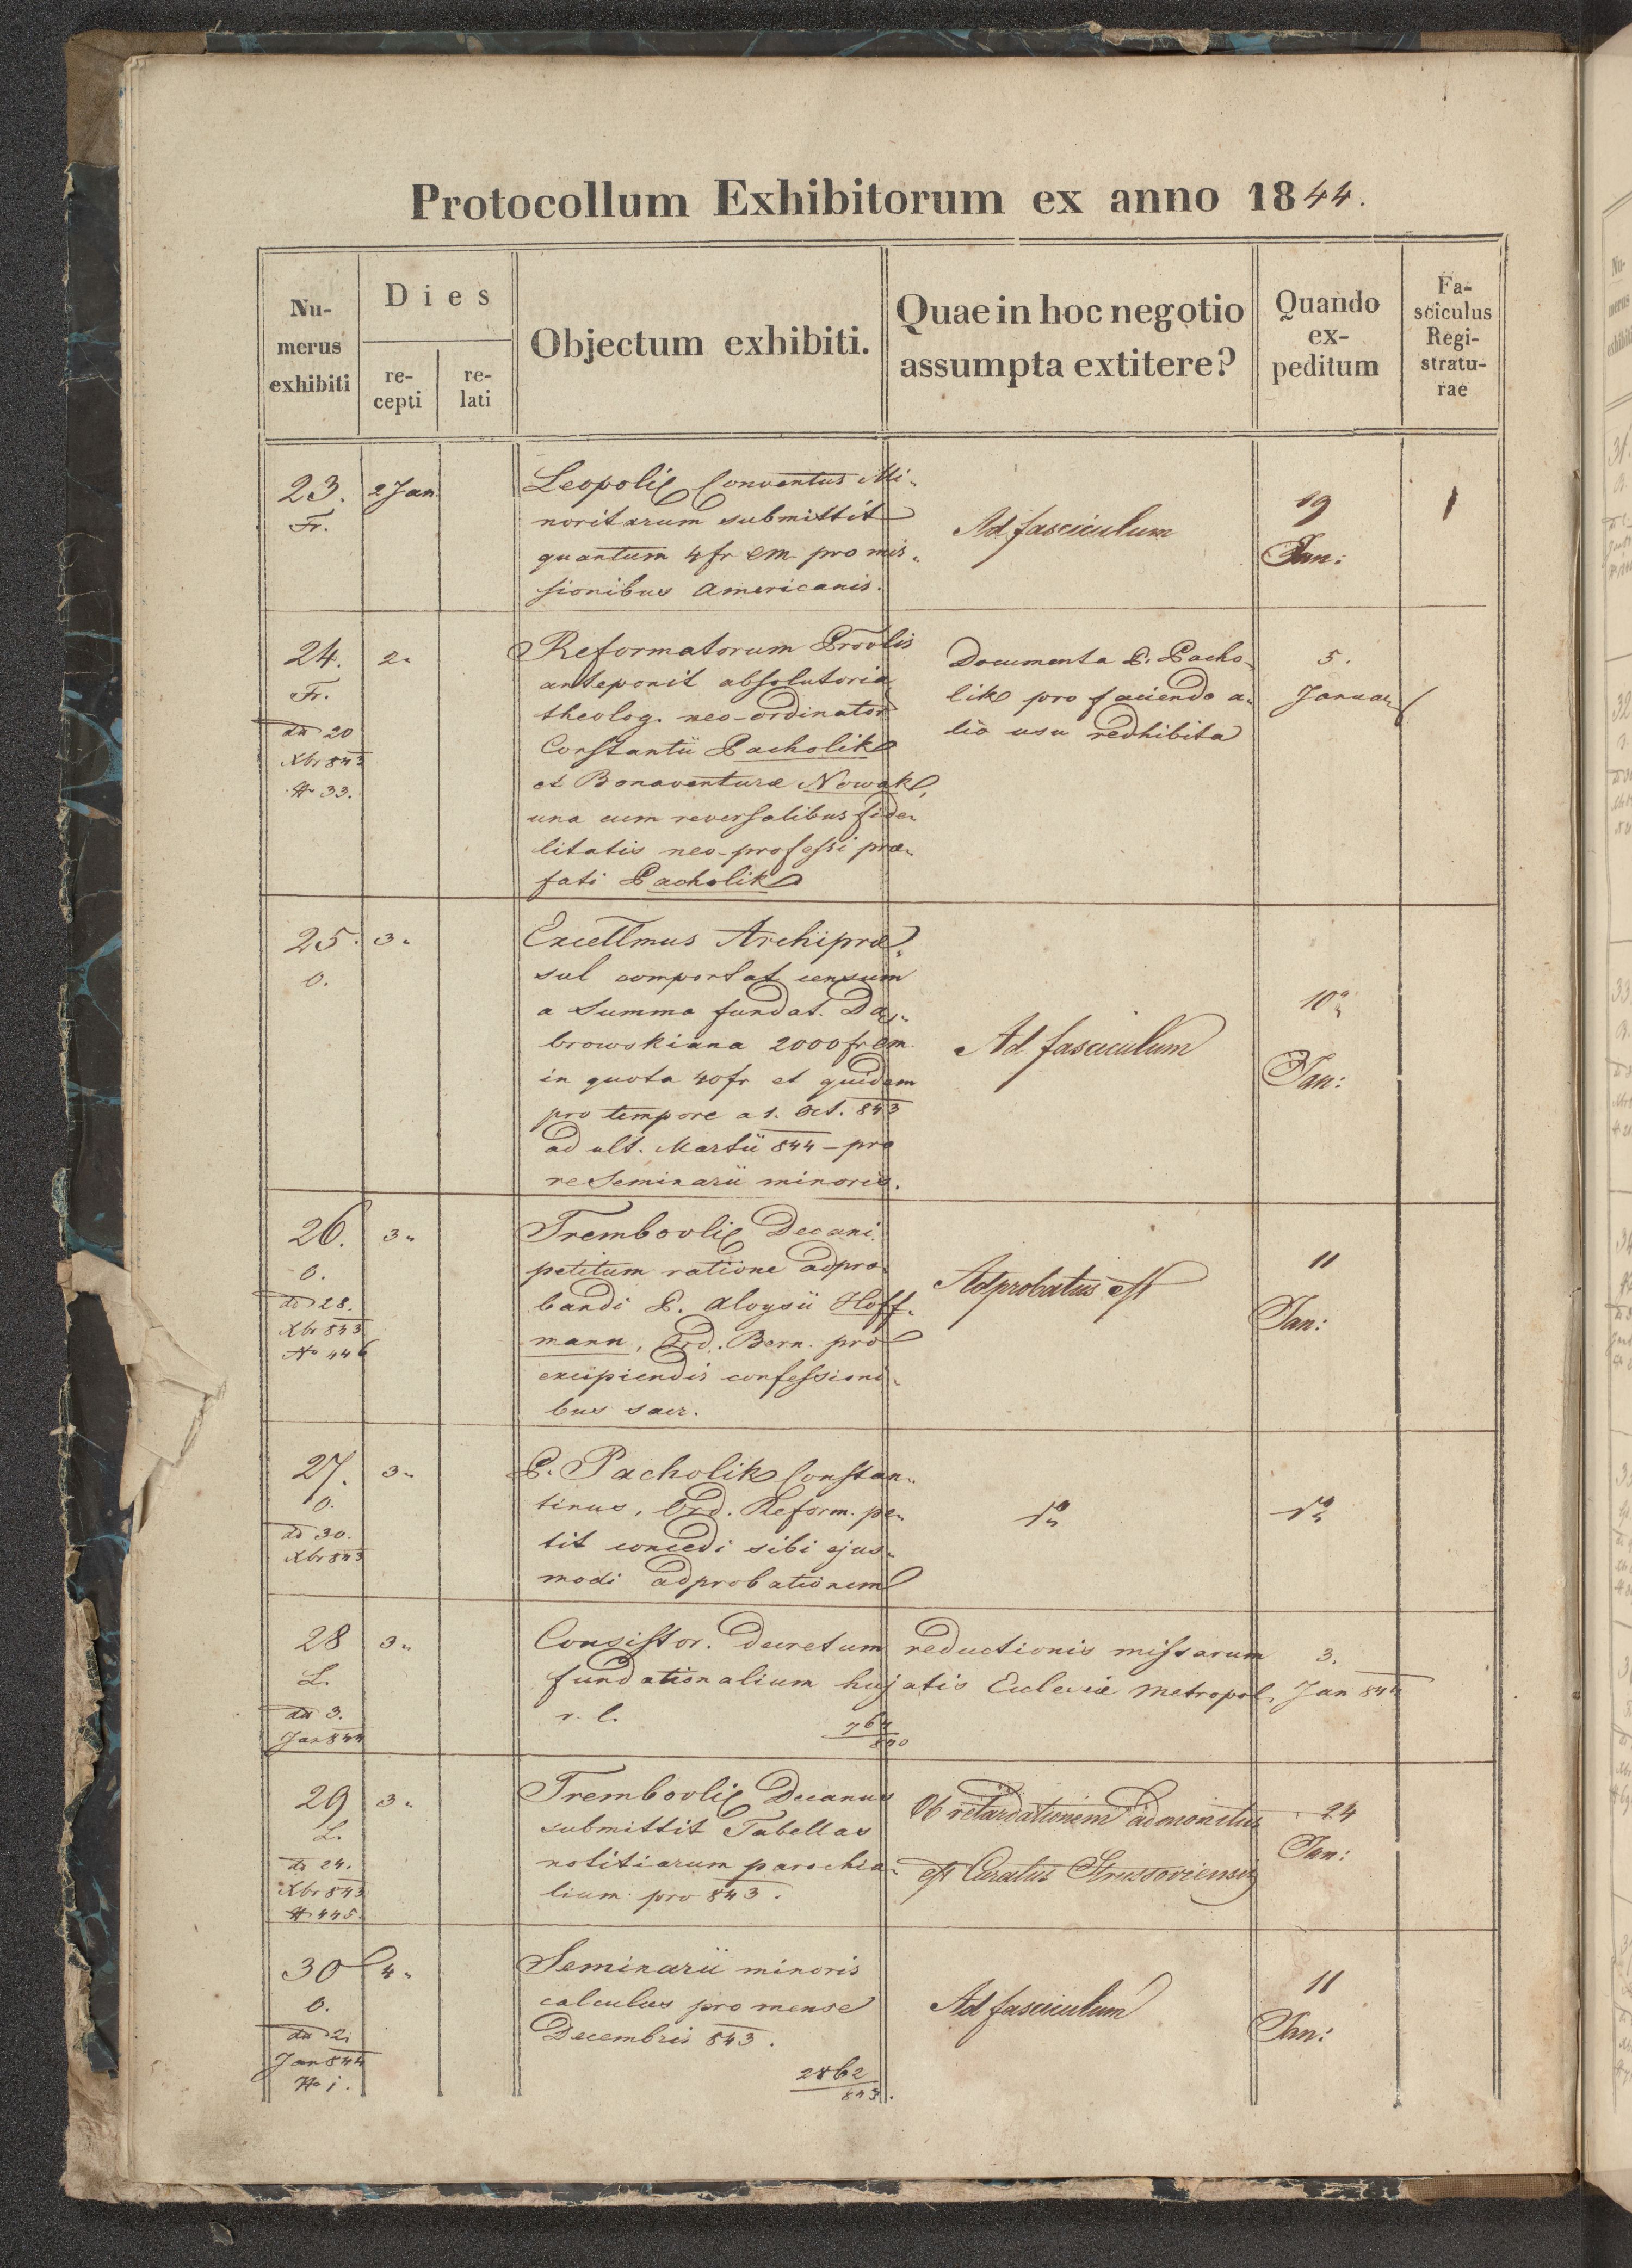 Protocollum Exhibitorum ex anno 1844.
Nu-
merus
exhibiti
Dies
re-
cepti
re-
lati
Objectum exhibiti.
Quae in hoc negotio
assumpta extitere?
Quando
ex-
peditum
Fa-
sciculus
Regi-
stratu-
rae
23.
Fr.
2 Jan.
Leopoli Conventus Mi-
noritarum submittit
quantum 4 fr Cm pro mis-
sionibus Americanis.
Ad fasciculum
19
Jan:
1
24.
Fr.
dd 20
Xbr 843
N 33.
2.
Reformatorum Provlis
anteponit absolutoria
theolog. neo-ordinator
Constantii Pacholik
et Bonaventurae Nowak,
una cum reversalibus fide-
litatis neo-professi prae-
fati Pacholik
Documenta P. Pacho-
lik pro faciendo a-
lio usu redhibita
5.
Januar
25.
O.
3.
Excellmus Archiprae-
sul comportat censum
a Summa fundat. Da-
browskiana 2000 fr Cm.
in quota 40 fr et quidem
pro tempore a 1. Oct. 843
ad ult. Martii 844 - pro
re Seminarii minoris.
Ad fasciculum
10
Jan:
26.
O.
dd 28.
Xbr 843
No 446
3.
Trembovli Decani
petitum ratione adpro-
bandi P. Aloysii Hoff-
mann, Ord. Bern. pro
excipiendis confessioni-
bus sacr.
Adprobatus est
11
Jan:
27.
O.
dd 30.
Xbr 843
3.
P. Pacholik Constan-
tinus, Ord. Reform. pe-
tit concedi sibi ejus-
modi adprobationem
28
L.
dd 3.
Jan 844
3.
Consistor. Decretum reductionis missarum
fundationalium hujatis Ecclesiae Metropol.
r. l.
3.
Jan 844
29
L.
dd 24.
Xbr 843
N 445.
3.
Trembovli Decanus
submittit Tabellas
notitiarum parochia-
lium pro 843.
Ob retardationem admonitus
est Curatus Strussoviensis
24
Jan:
30
O.
dd 2.
Jan 844
No 1.
4.
Seminarii minoris
calculus pro mense
Decembris 843.
2862
843.
Ad fasciculum
11
Jan: